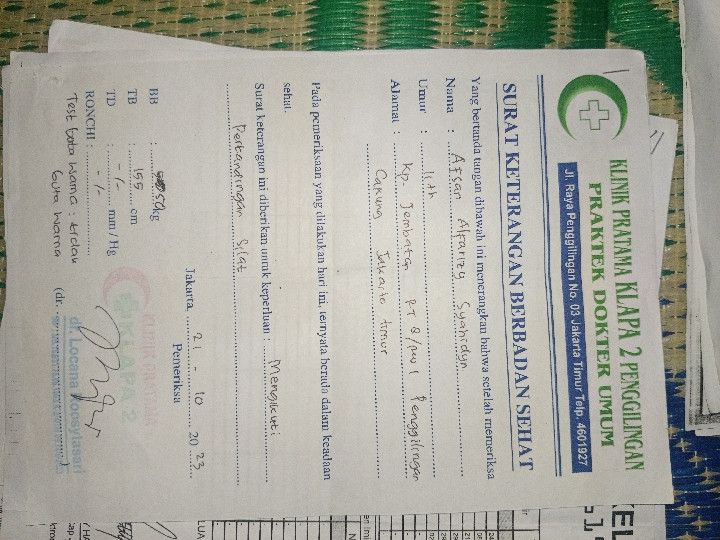 KLINIK PRATAMA KLAPA 2 PENGGILINGAN
PRAKTEK DOKTER UMUM
Jl. Raya Penggilingan No. 03 Jakarta Timur Telp. 4601927
SURAT KETERANGAN BERBADAN SEHAT
Yang bertanda tangan dibawah ini menerangkan bahwa setelah memeriksa
Nama : Afsan Alfarizy Syahidyn
Umur : 11 th
Alamat : Kp. Jembatan RT 8/ Penggilingan
Cakung Jakarta timur
Pada pemeriksaan yang dilakukan hari ini, ternyata berada dalam keadaan
sehat.
Surat keterangan ini diberikan untuk keperluan : Mengikuti
Pertandingan Silat
Jakarta, 21 - 10 20 23
Pemeriksa
BB : 50 kg
TB : 155 cm
TD : -/- mm / Hg
RONCHI : -/-
Test buta warna : tidak
buta warna
KLAPA 2
(dr.
dr. Locana Yoosytasari
KEL
LUA